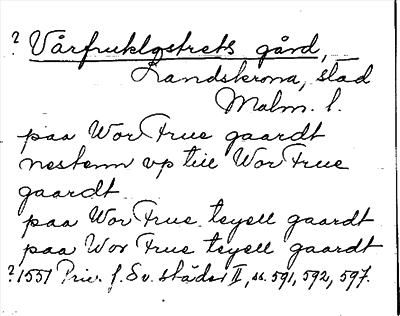 ? Vårfruklostrets gård,
Landskrona, stad
Malm. l.
paa Wor Frue gaardt
nestenn vp tiie Wor Frue
gaardt
paa Wor Frue teyell gaardt
paa Wor Frue teyell gaardt
? 1551 Priv. f. Sv. städer II, ss. 591, 592, 597.